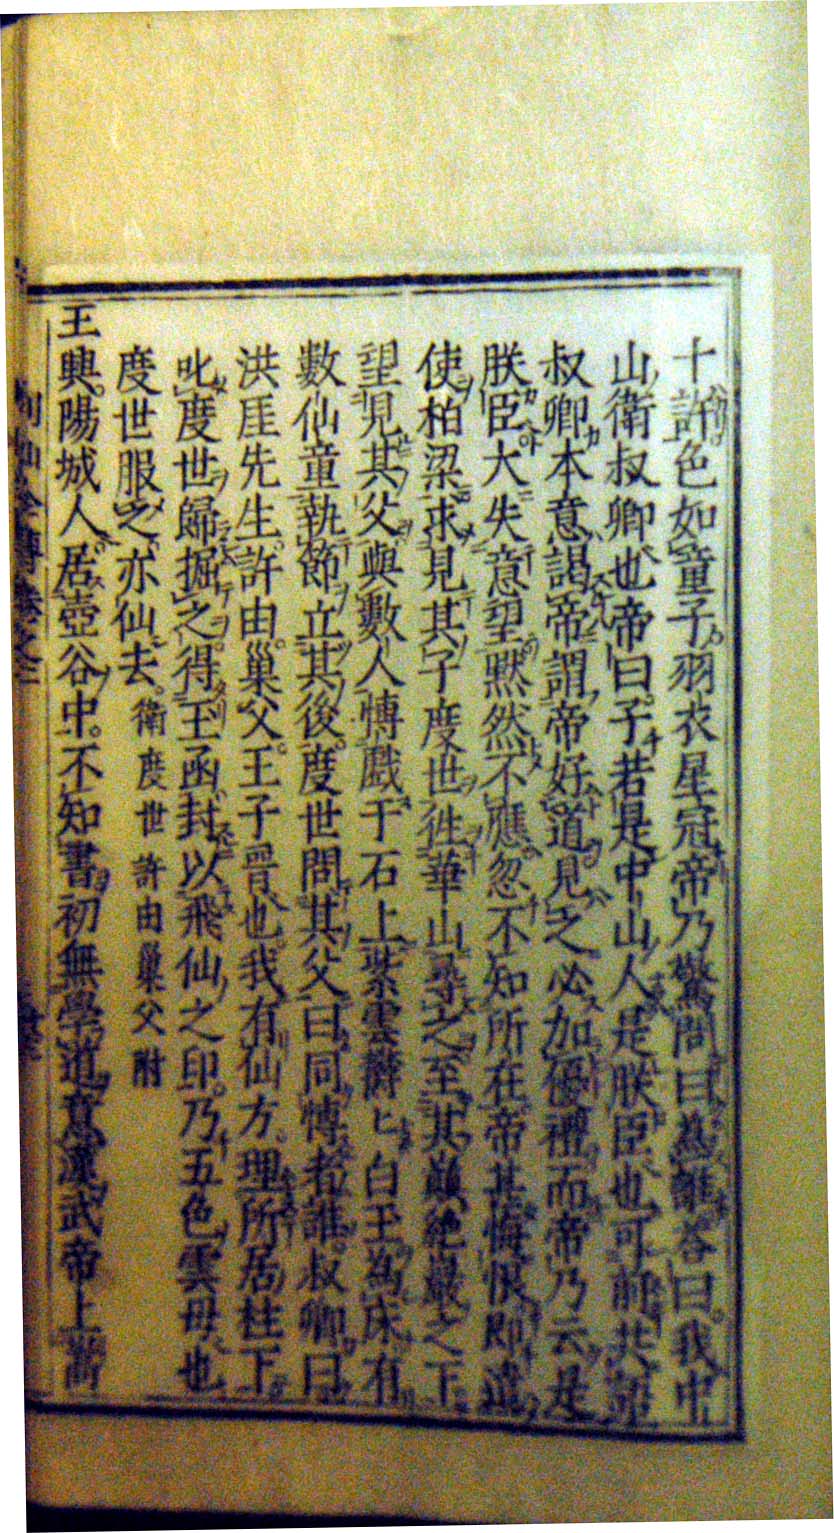 十許色如童子羽衣星冠帝乃驚問曰為誰答曰我中
山衛叔卿也帝曰子若是中山人是朕臣也可前共語
叔卿本意謁帝謂帝好道見之必加優禮而帝乃云是
朕臣大失意望黙然不應忽不知所在帝甚悔恨即遣
使柏梁求見其子度世徃華山尋之至其巔絶巖之下
望見其父與數人博戲于石上紫雲欝々白玉為床有
數仙童執節立其後度世問其父曰同博者誰叔卿曰
洪厓先生許由巢父王子晉也我有仙方埋所居柱下
叱度世歸掘之得玉函封以飛仙之印乃五色雲母也
度世服之亦仙去衛度世許由巢父附
王興陽城人居壺谷中不知書初無學道意漢武帝上嵩
列仙全傳卷之二